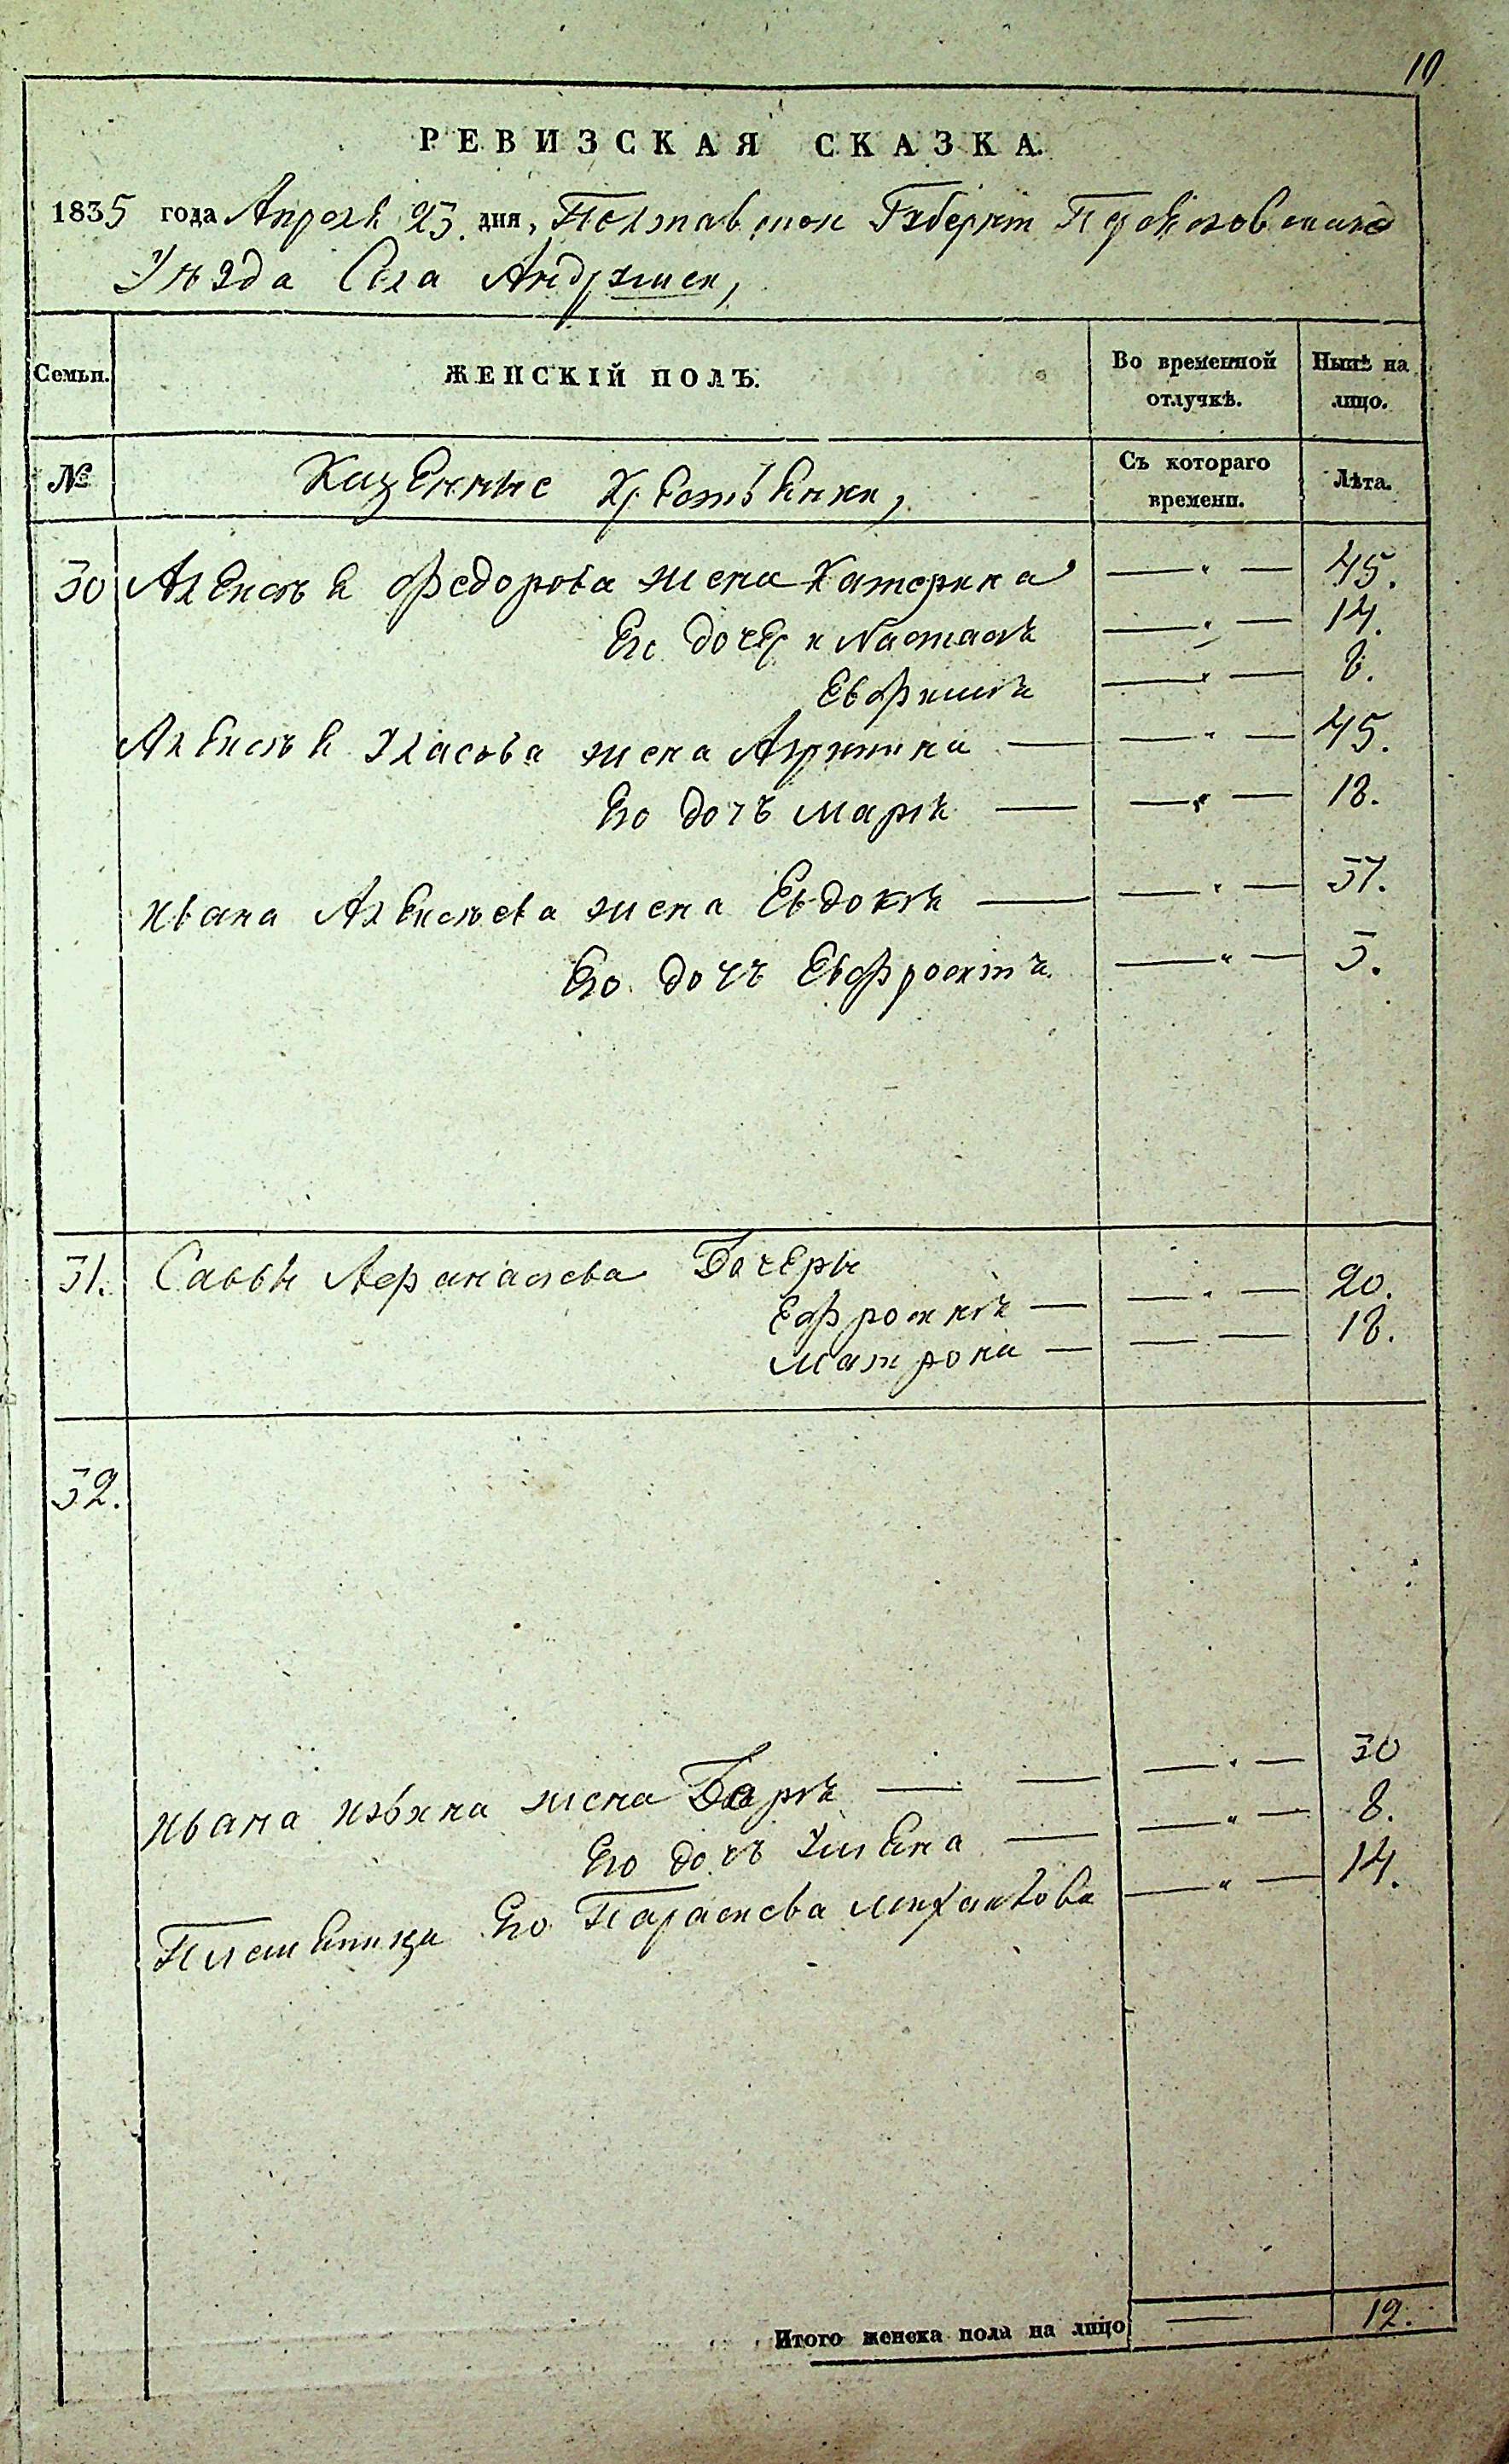 10
РЕВИЗСКАЯ СКАЗКА.
1835 года Апреля 23. дня, Полтавской Губернiи Переяславскаго
Уезда Села Андрушек,
Семьи. ЖЕНСКІЙ ПОЛЪ. Во временной отлучкѣ. Нынѣ на лицо.
№ Казенные Крестьянки, Съ котораго времени. Лѣта.
30 Алексея Федорова жена Катерина — " — 45.
Его дочери Настасія — " — 14.
Евфимія — " — 8.
Алексея Власова жена — " — 45.
Его дочъ Марія — " — 18.
Ивана Алексеева жена Евдокія — " — 37.
Его дочъ Евфросинія — " — 5.
31. Саввы Афанасиева Дочеры
Ефросинія — " — 20.
Матрона — — 18.
32.
Ивана жена Дарія — " — 30
Его дочъ Ульяна — " — 8.
Племяница Его Параскева Михайлова — " — 14.
Итого женска пола на лицо — 12.